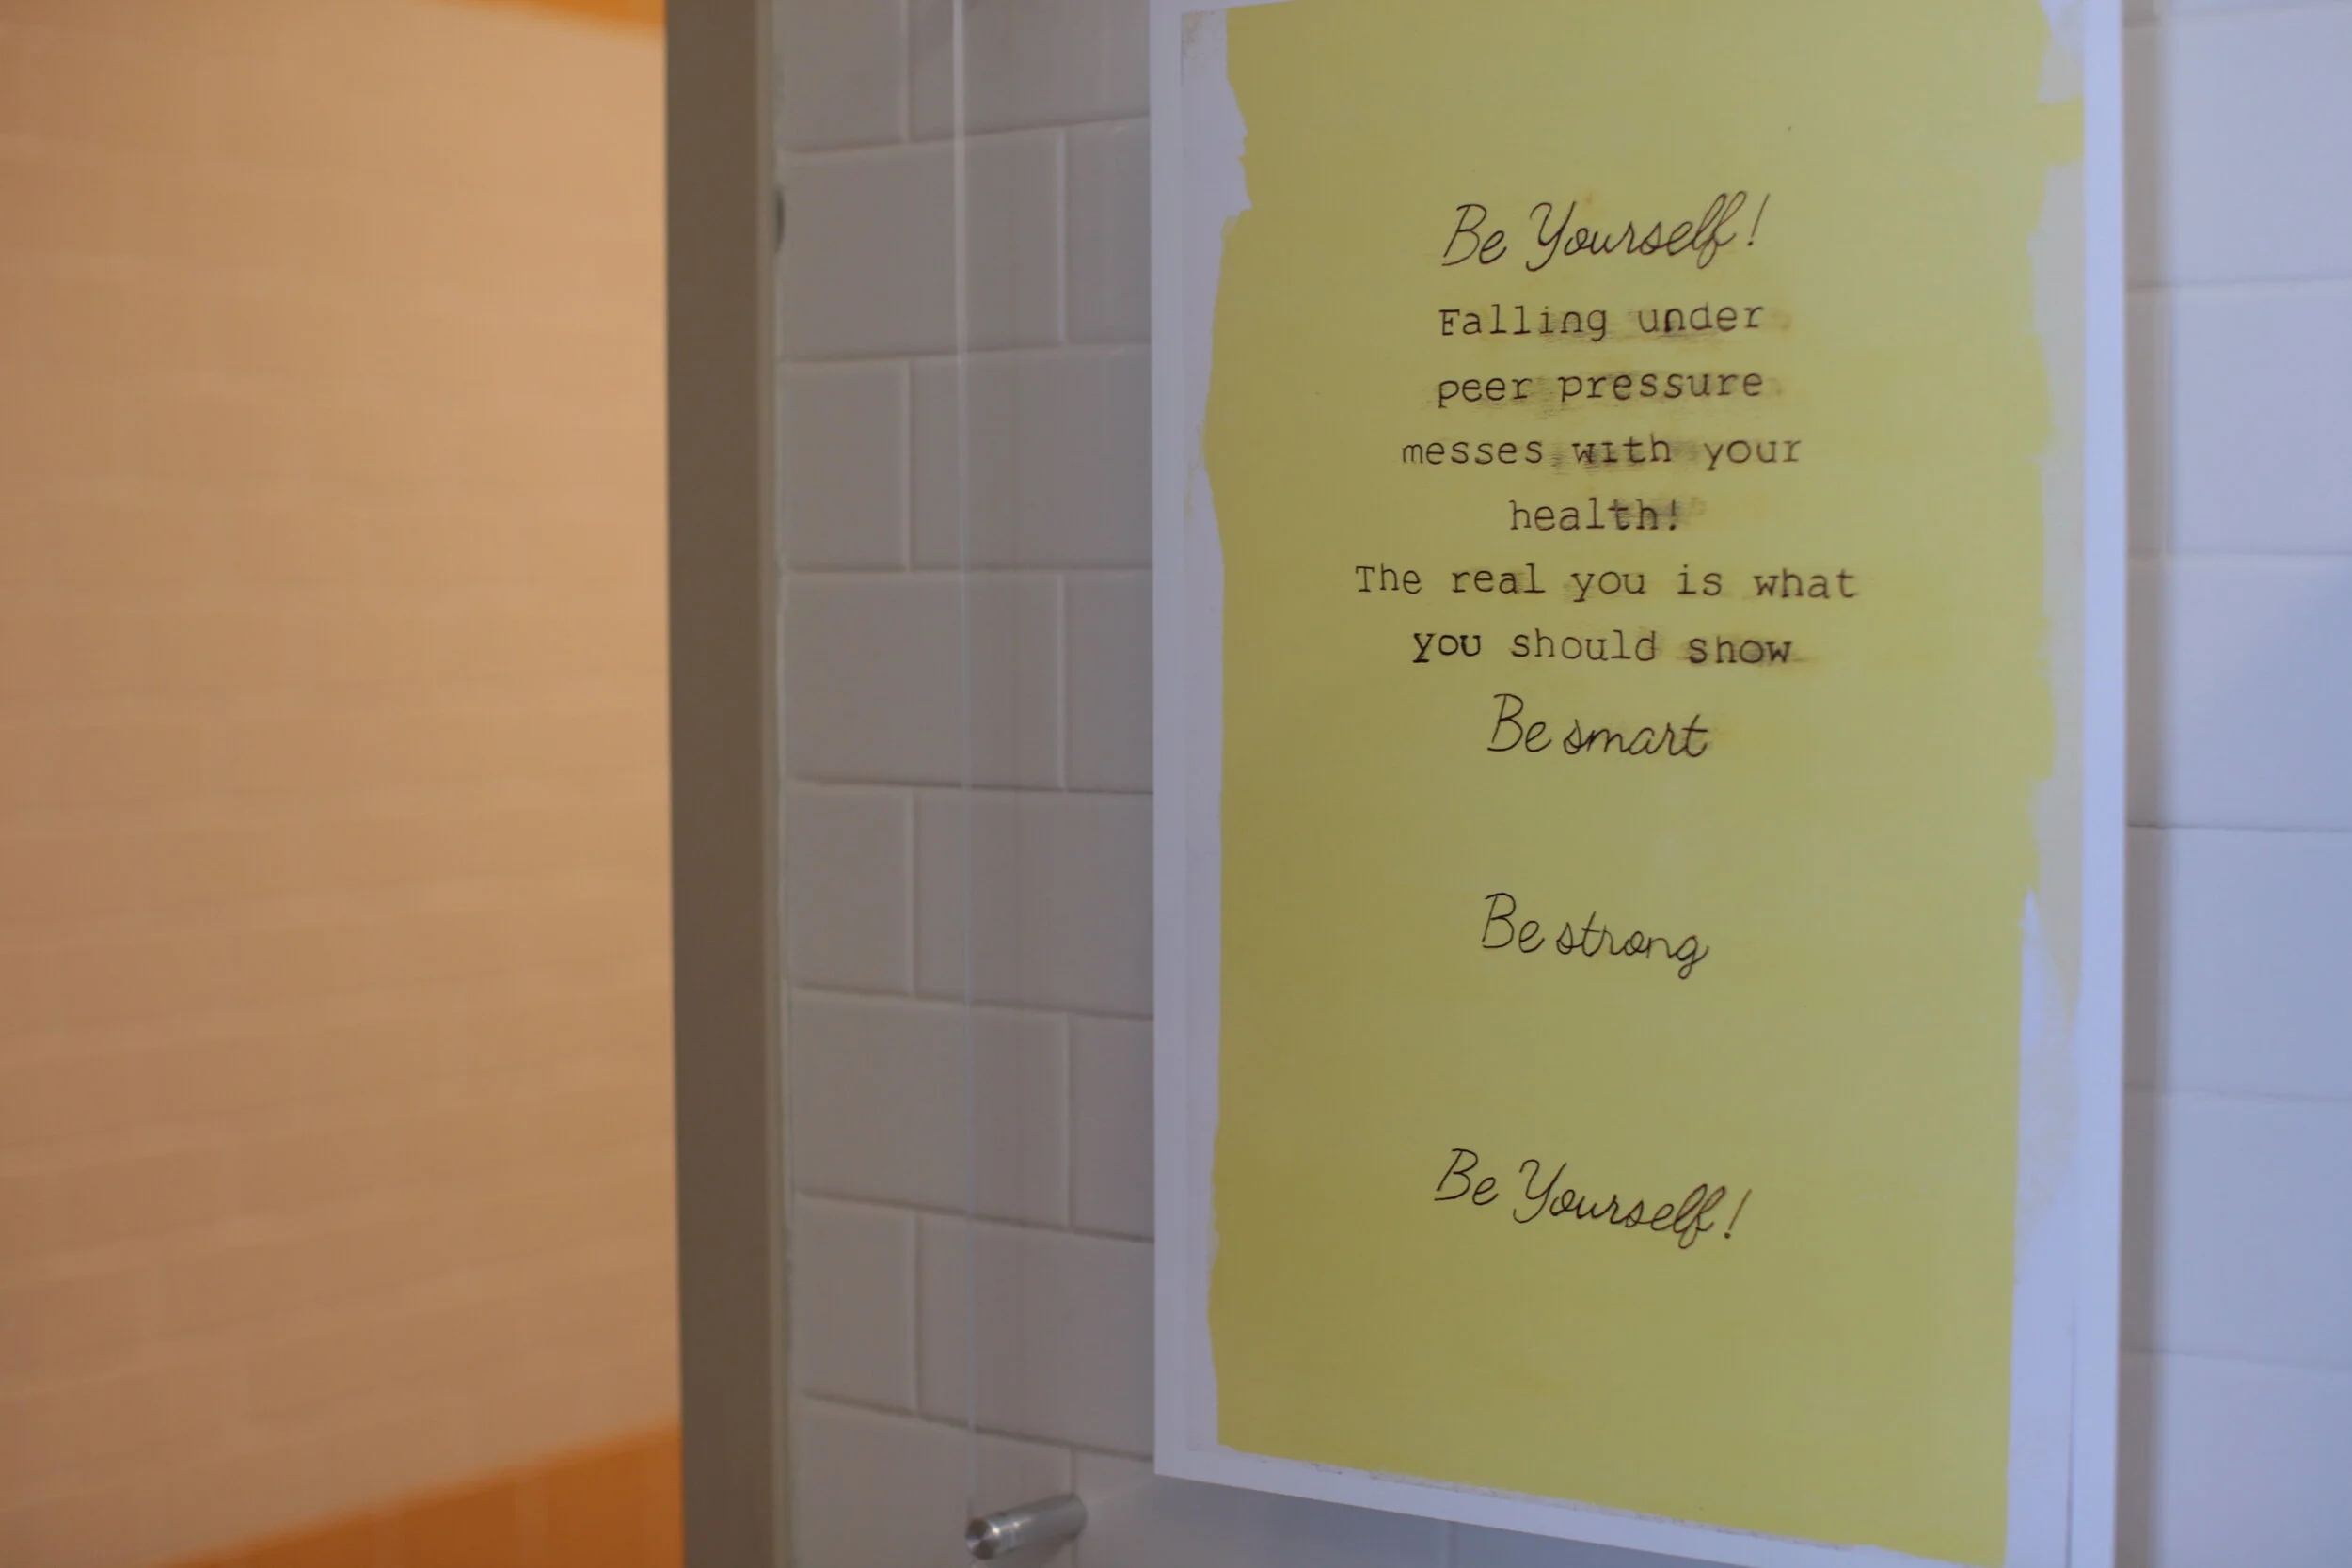 Be Yourself!
Falling under
peer pressure
messes with your
health!
The real you is what
you should show
Be smart
Be strong
Be Yourself!